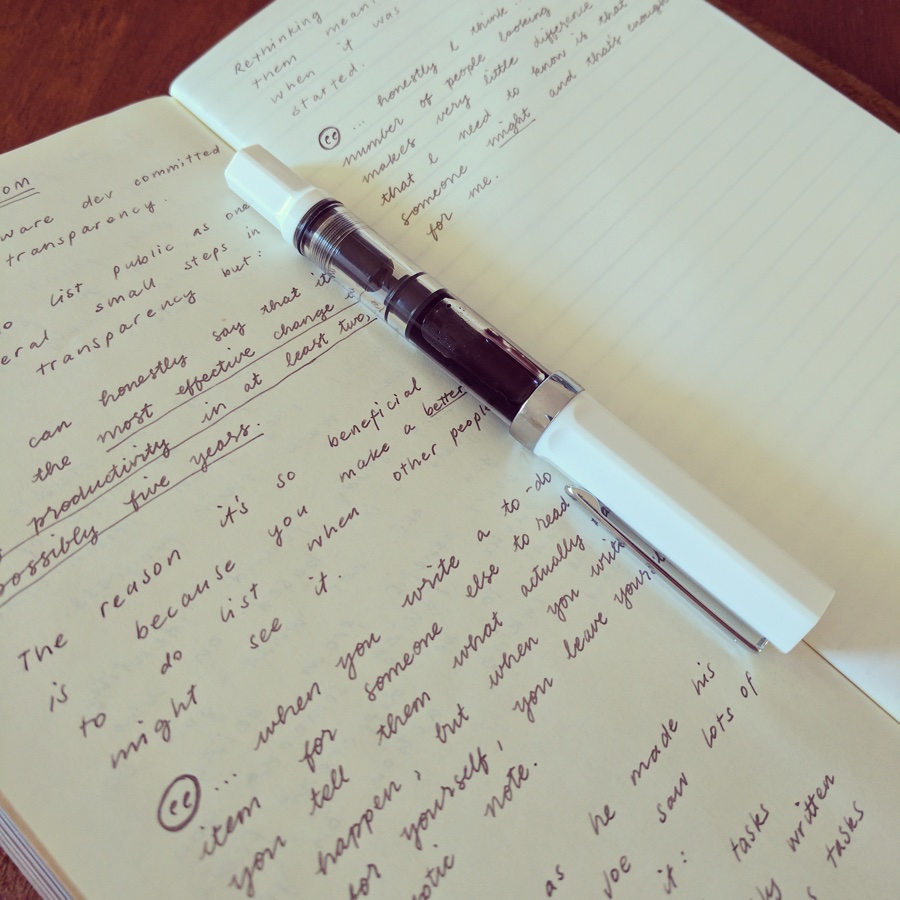 om
ware dev committed
transparency.
list public as one
eral small steps in
transparency but:
can honestly say that it
the most effective change
productivity in at least two,
possibly five years.
The reason it's so beneficial
is because you make a better
to do list when other people
might see it.
"... when you write a to-do
item for someone else to read
you tell them what actually
happen, but when you write
for yourself, you leave yourself
note.
as he made his
Joe saw lots of
it: tasks
written
tasks
Rethinking
them mean
when it was
started.
"... honestly I think ...
number of people looking
makes very little difference
that I need to know is that
someone might and that's enough
for me.